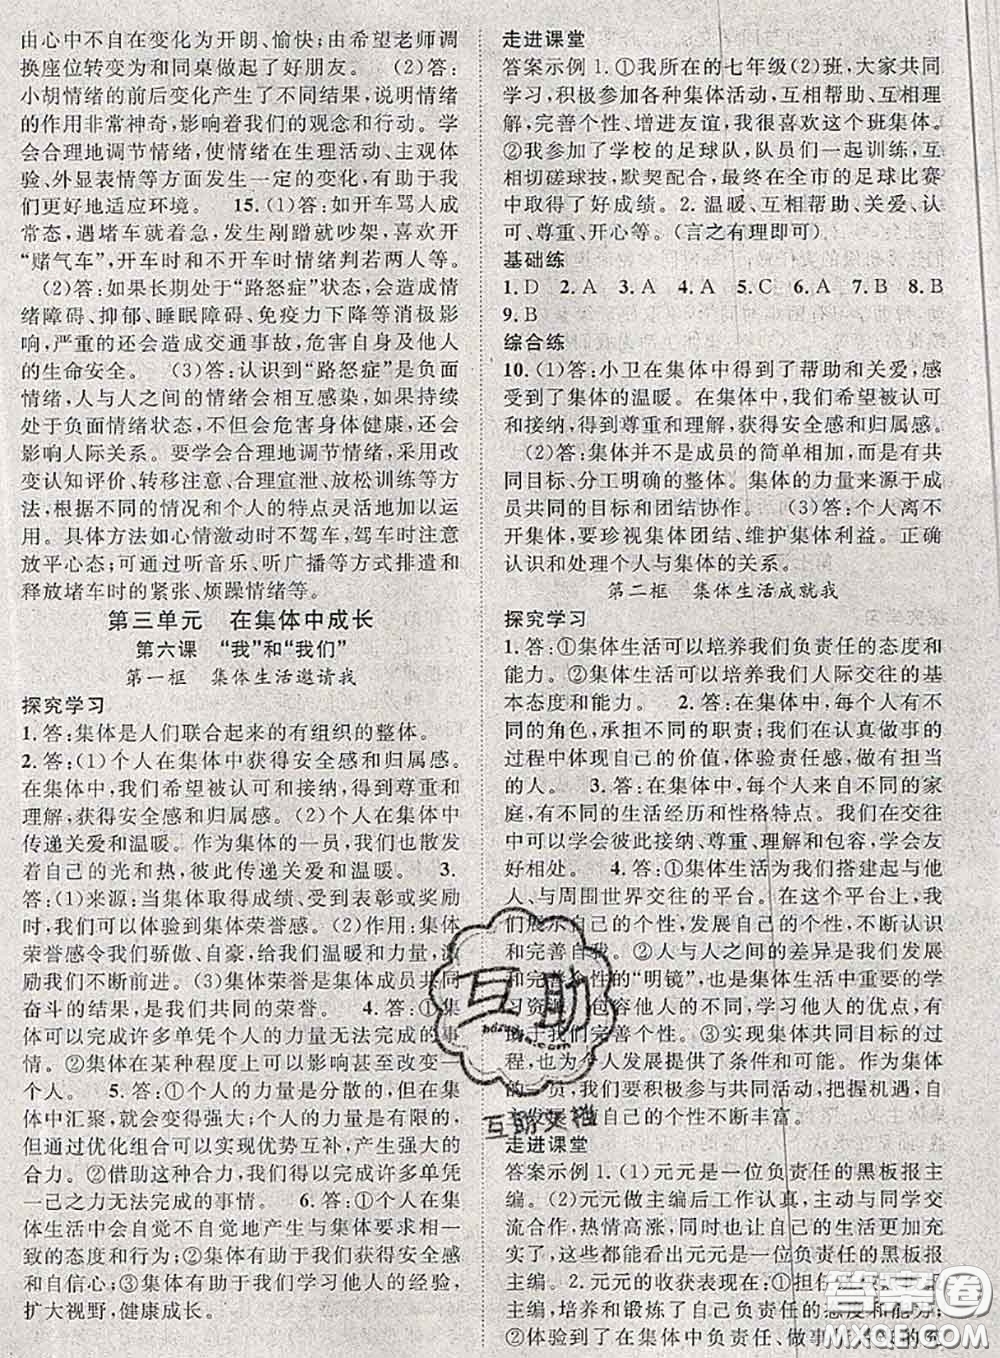 由心中不自在变化为开朗、愉快;由希望老师调
换座位转变为和同桌做起了好朋友。 (2)答:
小胡情绪的前后变化产生了不同结果,说明情绪
的作用非常神奇,影响着我们的观念和行动。学
会合理地调节情绪,使情绪在生理活动、主观体
验、外显表情等方面发生一定的变化,有助于我
们更好地适应环境。 15.(1)答:如开车骂人成
常态,遇堵车就着急,发生剐蹭就吵架,喜欢开
“赌气车”,开车时和不开车时情绪判若两人等。
(2)答:如果长期处于“路怒症”状态,会造成情
绪障碍、抑郁、睡眠障碍、免疫力下降等消极影
响,严重的还会造成交通事故,危害自身及他人
的生命安全。 (3)答:认识到“路怒症”是负面
情绪,人与人之间的情绪会相互感染,如果持续
处于负面情绪状态,不但会危害身体健康,也会
影响人际关系。要学会合理地调节情绪,采用改
变认知评价、转移注意、合理宣泄、放松训练等方
法,根据不同的情况和个人的特点灵活地加以运
用。具体方法如心情激动时不驾车,驾车时注意
放平心态;可通过听音乐、听广播等方式排遣和
释放堵车时的紧张、烦躁情绪等。
第三单元 在集体中成长
第六课 “我”和“我们”
第一框 集体生活邀请我
探究学习
1.答:集体是人们联合起来的有组织的整体。
2.答:(1)个人在集体中获得安全感和归属感。
在集体中,我们希望被认可和接纳,得到尊重和
理解,获得安全感和归属感。(2)个人在集体中
传递关爱和温暖。作为集体的一员,我们散发着
自己的光和热,彼此传递关爱和温暖。 3.
答:(1)当集体取得成绩、受到表彰或者奖励
时,我们可以体验到集体荣誉感。(2)作用:集体
荣誉感令我们骄傲、自豪,给我们温暖和力量,激
励我们不断前进。(3)集体荣誉是集体成员共同
奋斗的结果,是我们共同的荣誉。 4.答:①集
体可以完成许多单凭个人的力量无法完成的事
情。②集体在某种程度上可以影响甚至改变一
个人。 5.答:①个人的力量是分散的,但在集
体中汇聚,就会变得强大;个人的力量是有限的,
但通过优化组合可以实现优势互补,产生强大的
合力。②借助这种合力,我们得以完成许多单凭
一己之力无法完成的事情。 6.答:①个人在集
体生活中会自觉不自觉地产生与集体要求相一
致的态度和行为;②集体有助于我们获得安全感
和自信心;③集体有助于我们学习他人的经验,
扩大视野,健康成长。
走进课堂
答案示例 1.①我所在的七年级(2)班,大家共同
学习,积极参加各种集体活动,互相帮助、互相理
解,完善个性、增进友谊,我很喜欢这个班集体。
②我参加了学校的足球队,队员们一起训练,互
相切磋球技,默契配合,最终在全市的足球比赛
中取得了好成绩。 2.温暖、互相帮助、关爱、认
可、尊重、开心等。(言之有理即可)
基础练
1.D 2.A 3.A 4.A 5.C 6.A 7.B 8.B
9.B
综合练
10.(1)答:小卫在集体中得到了帮助和关爱,感
受到了集体的温暖。在集体中,我们希望被认可
和接纳,得到尊重和理解,获得安全感和归属感。
(2)答:集体并不是成员的简单相加,而是有共
同目标、分工明确的整体。集体的力量来源于成
员共同的目标和团结协作。 (3)答:个人离不
开集体,要珍视集体团结、维护集体利益。正确
认识和处理个人与集体的关系。
第二框 集体生活成就我
探究学习
1.答:①集体生活可以培养我们负责任的态度和
能力;②集体生活可以培养我们人际交往的基
本态度和能力。 2.答:在集体中,每个人都有不
同的角色,承担不同的职责;我们在认真做事的
过程中体现自己的价值,体验责任感,做有担当
的人。 3.答:在集体中,每个人来自不同的家
庭,有不同的生活经历和性格特点。我们在交往
中可以学会彼此接纳、尊重、理解和包容,学会友
好相处。 4.答:①集体生活为我们搭建起与他
人、与周围世界交往的平台。在这个平台上,我
们展示自己的个性,发展自己的个性,不断认识
和完善自我。②人与人之间的差异是我们发展
和完善个性的“明镜”,也是集体生活中重要的学
习资源。包容他人的不同,学习他人的优点,有
助于我们完善个性。③实现集体共同目标的过
程,也为个人发展提供了条件和可能。作为集体
的一员,我们要积极参与共同活动,把握机遇,自
主发展,让自己的个性不断丰富。
走进课堂
答案示例 1.(1)元元是一位负责任的黑板报主
编。(2)元元做主编后工作认真,主动与同学交
流合作,热情高涨,同时也让自己的生活更加充
实了,这些都能看出元元是一位负责任的黑板报
主编。 2.元元的收获表现在:①担任
主编,培养和锻炼了自己负责任的态度和能力;
②体验到了在集体中负责任、做事
互助
hdzuoye.com
互助文档
答案圈
MXQE.COM